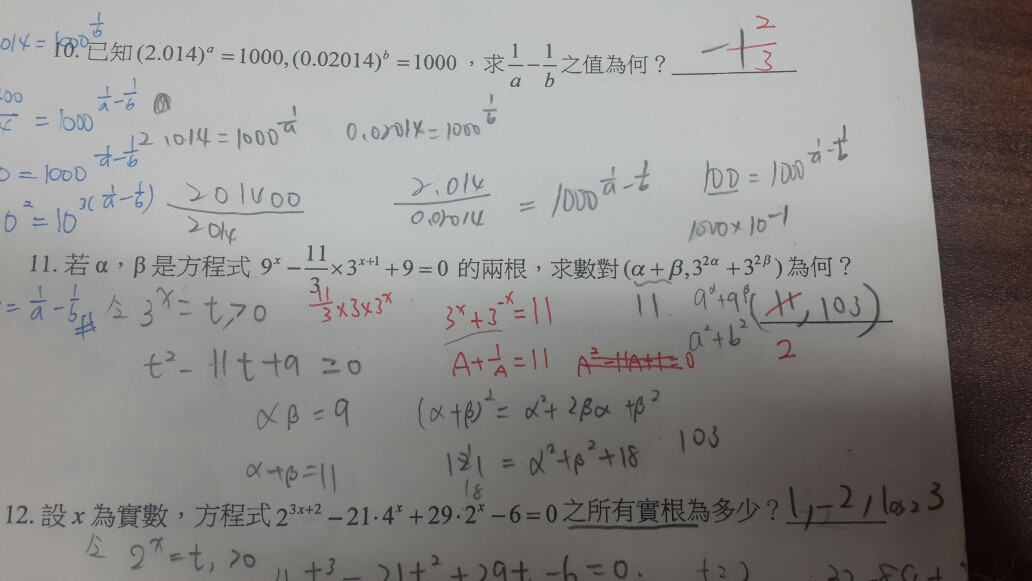 014 = 1000^{1/6}
10. 已知(2.014)^a = 1000, (0.02014)^b = 1000，求 1/a − 1/b 之值為何？ 2/3
= 1000^{1/a − 1/b}
2.014 = 1000^{1/a} 0.02014 = 1000^{1/b}
0 = 1000^{1/a − 1/b}
201400/2014 2.014/0.02014 = 1000^{1/a − 1/b} 100 = 1000^{1/a − 1/b}
0^2 = 10^{3(1/a − 1/b)} 1000×10^{-1}
11. 若 α，β 是方程式 9^x − 11/3 × 3^{x+1} + 9 = 0 的兩根，求數對 (α + β, 3^{2α} + 3^{2β}) 為何？
= 1/a − 1/b 令 3^x = t, >0 11/3 × 3 × 3^x 3^x + 3^{-x} = 11 11. 9^α + 9^β (11, 103)
t^2 − 11t + 9 = 0 A + 1/A = 11 A^2 − 11A + 1 = 0 a^2 + b^2 2
αβ = 9 (α+β)^2 = α^2 + 2βα + β^2
α+β = 11 121 = α^2 + β^2 + 18 103
18
12. 設 x 為實數，方程式 2^{3x+2} − 21·4^x + 29·2^x − 6 = 0 之所有實根為多少？ 1, −2, log_2 3
令 2^x = t, >0 4t^3 − 21t^2 + 29t − 6 = 0.